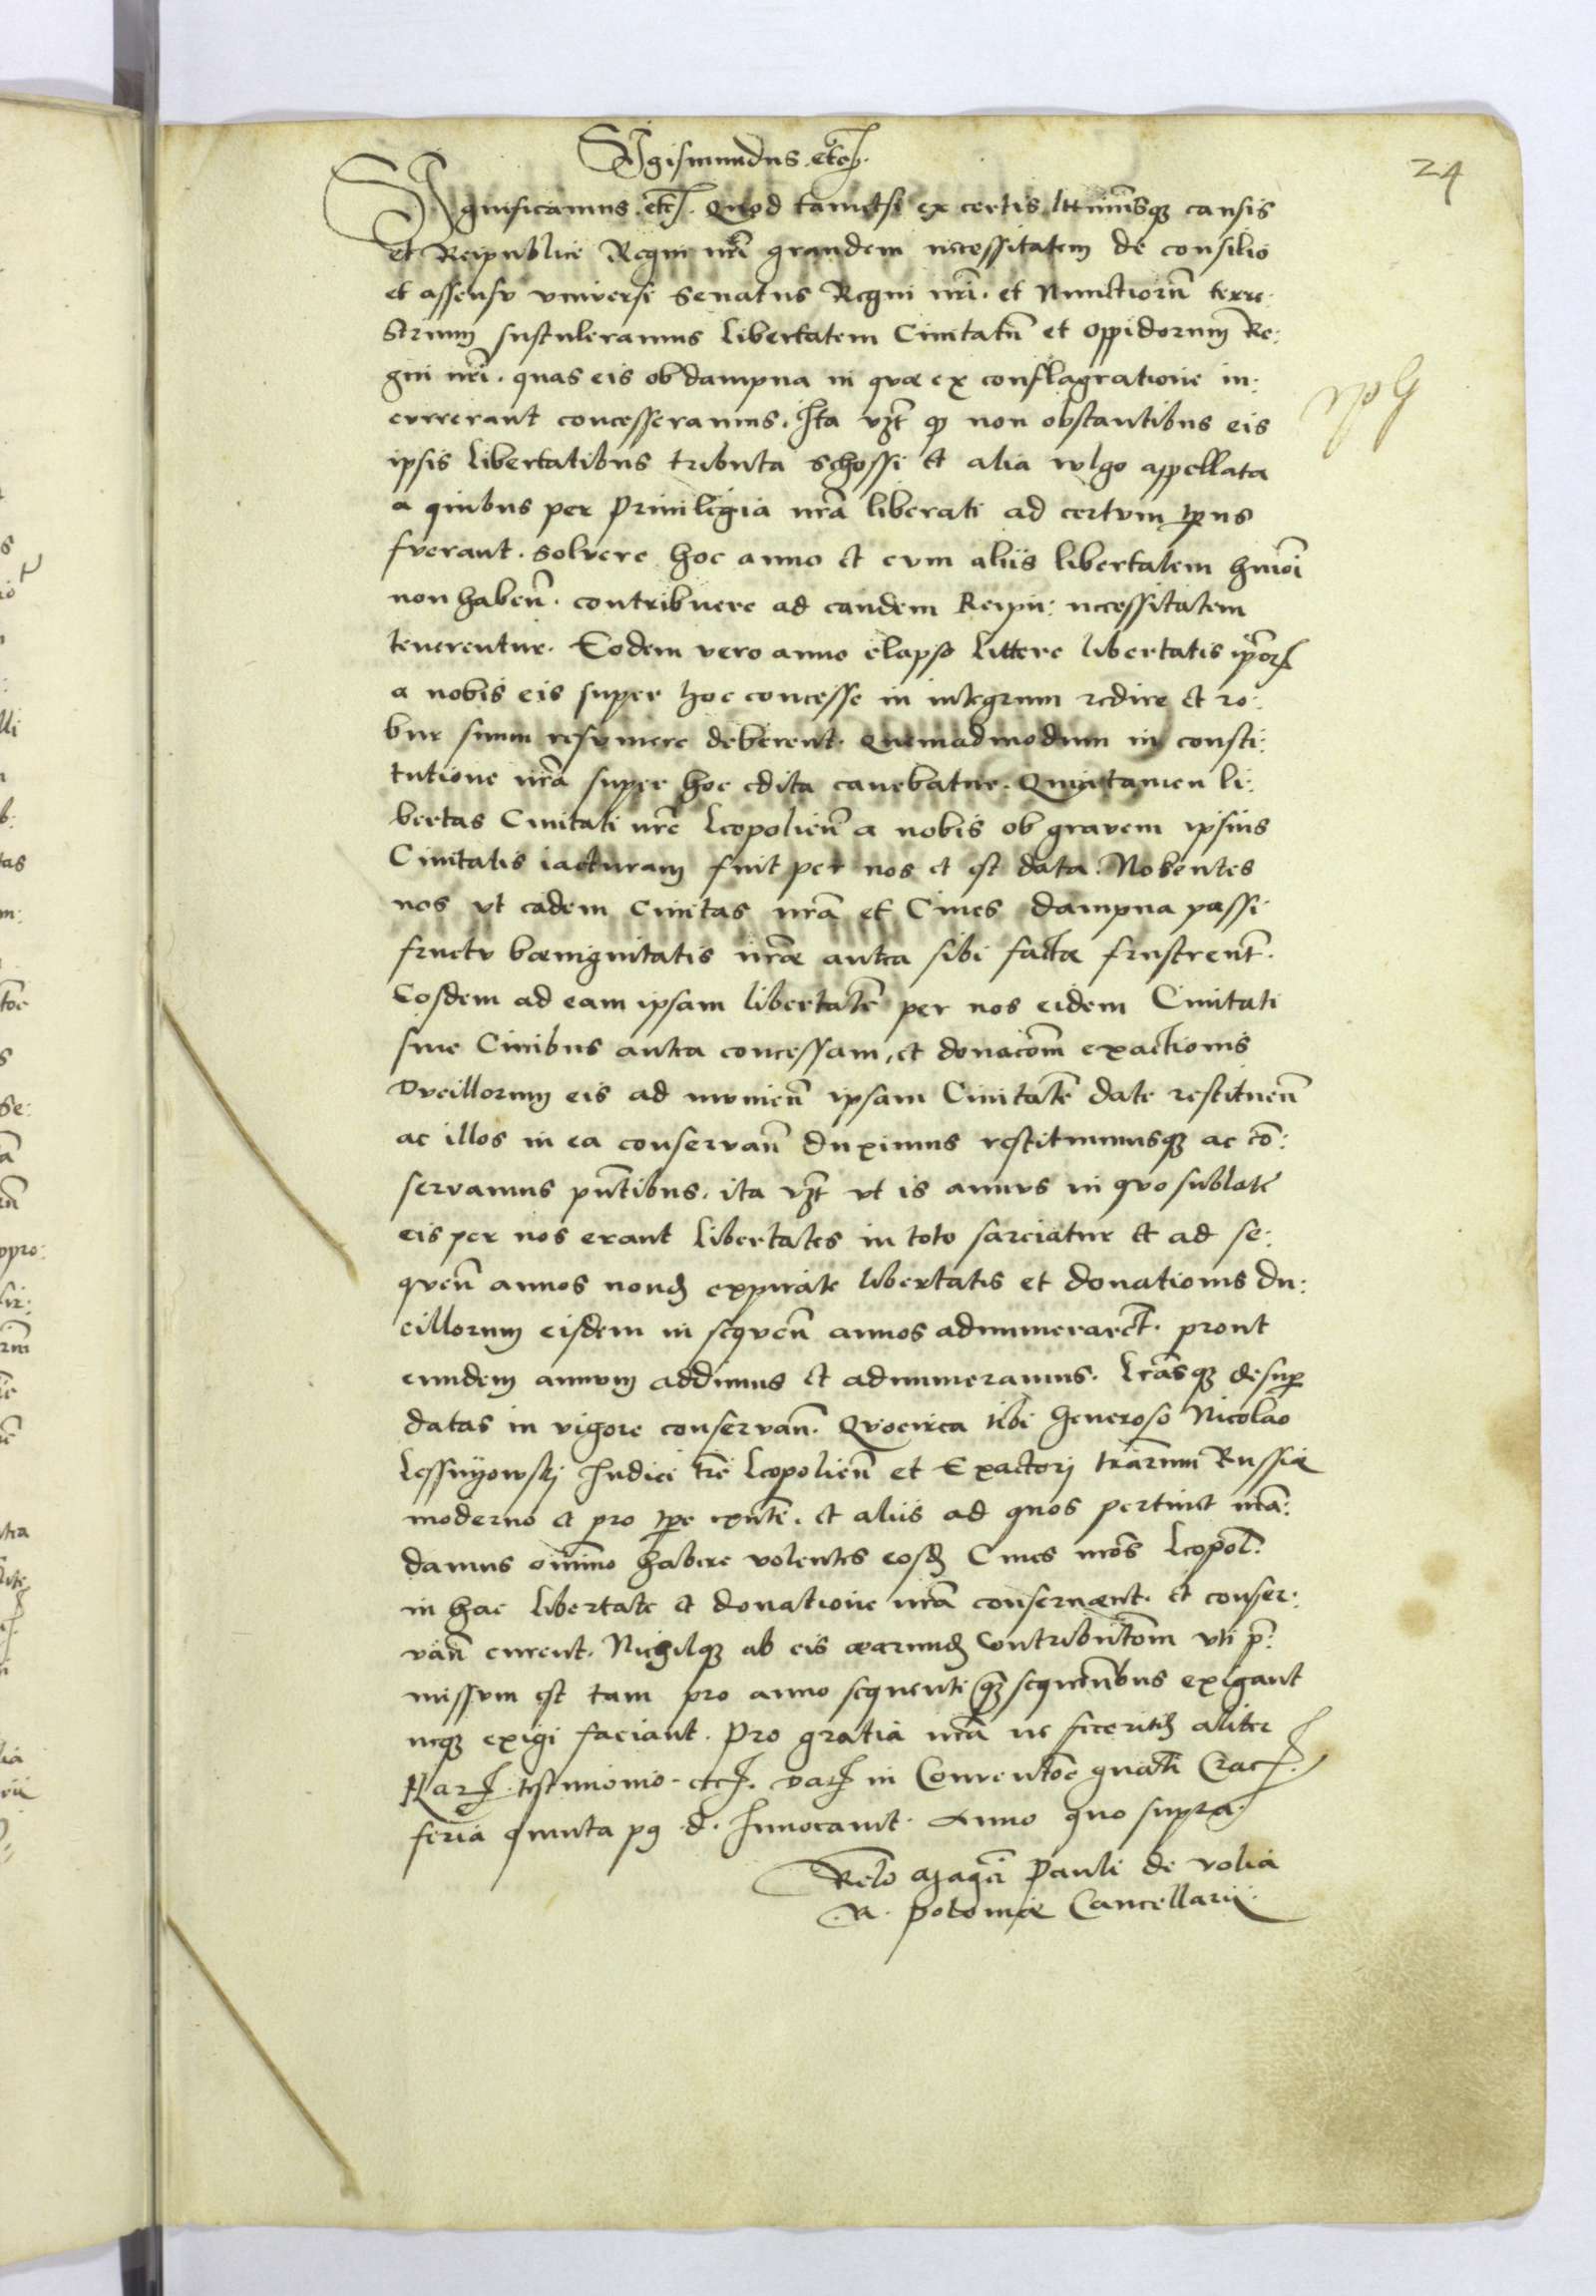 24
Sigismundus. etc.
Significamus. etc. Quod tametsi ex certis lttimisq; causis
et Reipublice Regni nri grandem necessitatem de consilio
et assensv vniversi Senatus Regni nri. et Nunctiorū terre:
strium sustuleramus libertatem Ciuitatū et oppidorum Re:
gni nri. quas eis ob dampna in quæ ex conflagratione in:
cvrrerant concesseramus. Ita vzt q non obstantibus eis
ipsis libertatibus tributa schossi et alia wlgo appellata
a quibus per Priuilegia nrā liberati ad certvm tpus
fverant. solvere hoc anno et cvm aliis libertatem hmōi
non habeñ. contribvere ad eandem Reipu: necessitatem
tenerentur. Eodem vero anno elapso littere libertatis ipōr
a nobis eis super hoc concesse in integrum redire et ro:
bur suum resvmere deberent. quemadmodum in consti:
tutione nrā super hoc edita cauebatur. Quia tamen li:
bertas Ciuitati nrē Leopolieñ a nobis ob gravem ipsius
Ciuitatis iacturam fuit per nos et est data. Nolentes
nos vt eadem Ciuitas nrā et Ciues dampna passi
fructv bænignitatis nræ antea sibi factæ frustrent̄.
Eosdem ad eam ipsam libertatē per nos eidem Ciuitati
siue Ciuibus antea concessam, et donacōm exactionis
Dvcillorum eis ad mvnieñ ipsam Ciuitatē date restitueñ
ac illos in ea conservañ duximus restituimusq; ac cō:
servamus pñtibus. ita vzt vt is annvs in qvo sublate
eis per nos erant libertates in toto sarciatur et ad se:
qveñ annos nond expirate libertatis et donationis du:
cillorum eisdem in seqveñ annos adnumeraret̄. prout
eundem annvm addimus et adnumeramus. Lrāsq; desup
datas in vigore conservañ. Qvocirca tibi Generoso Nicolao
Lessnyowskj Iudici trē Leopolieñ et Exactorj trārum Russiæ
moderno et pro tpe exnte. et aliis ad quos pertinet mā:
damus omīno habere volentes eosd Ciues nrōs Leopol.
in hac libertate et donatione nrā conseruent. et conser:
vañ curent. Nichilq; ab eis earund Contributōm vti p̄:
missvm est tam pro anno sequenti q sequeñbus exigant
neq; exigi faciant. Pro gratia nrā ne feceritis aliter
Har. testimonio. etc. Dat in Conventōe gnāli Crac.
feria quinta p9 .d. Inuocauit. Anno quo supra.
Relō Magci Pauli de volia
.R. poloniæ Cancellarij.